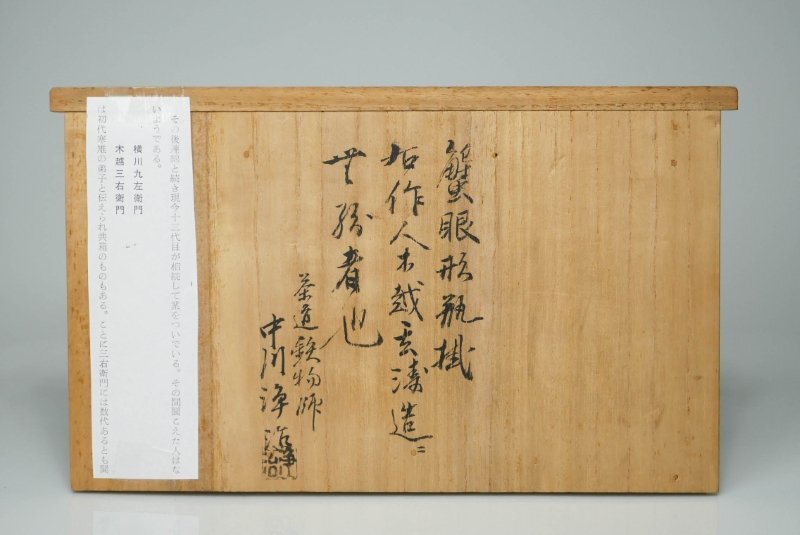 蟹眼形瓶掛
右作人木越濤造ニ
無紛者也
茶道鉄物師
中川淨治
浄治
その後連綿と続き現今十二代目が相続して業をついでいる。その間聞こえた人はな
いようである。
横川九左衛門
木越三右衛門
は初代寒雉の弟子と伝えられ共箱のものもある。ことに三右衛門には数代あるとも聞